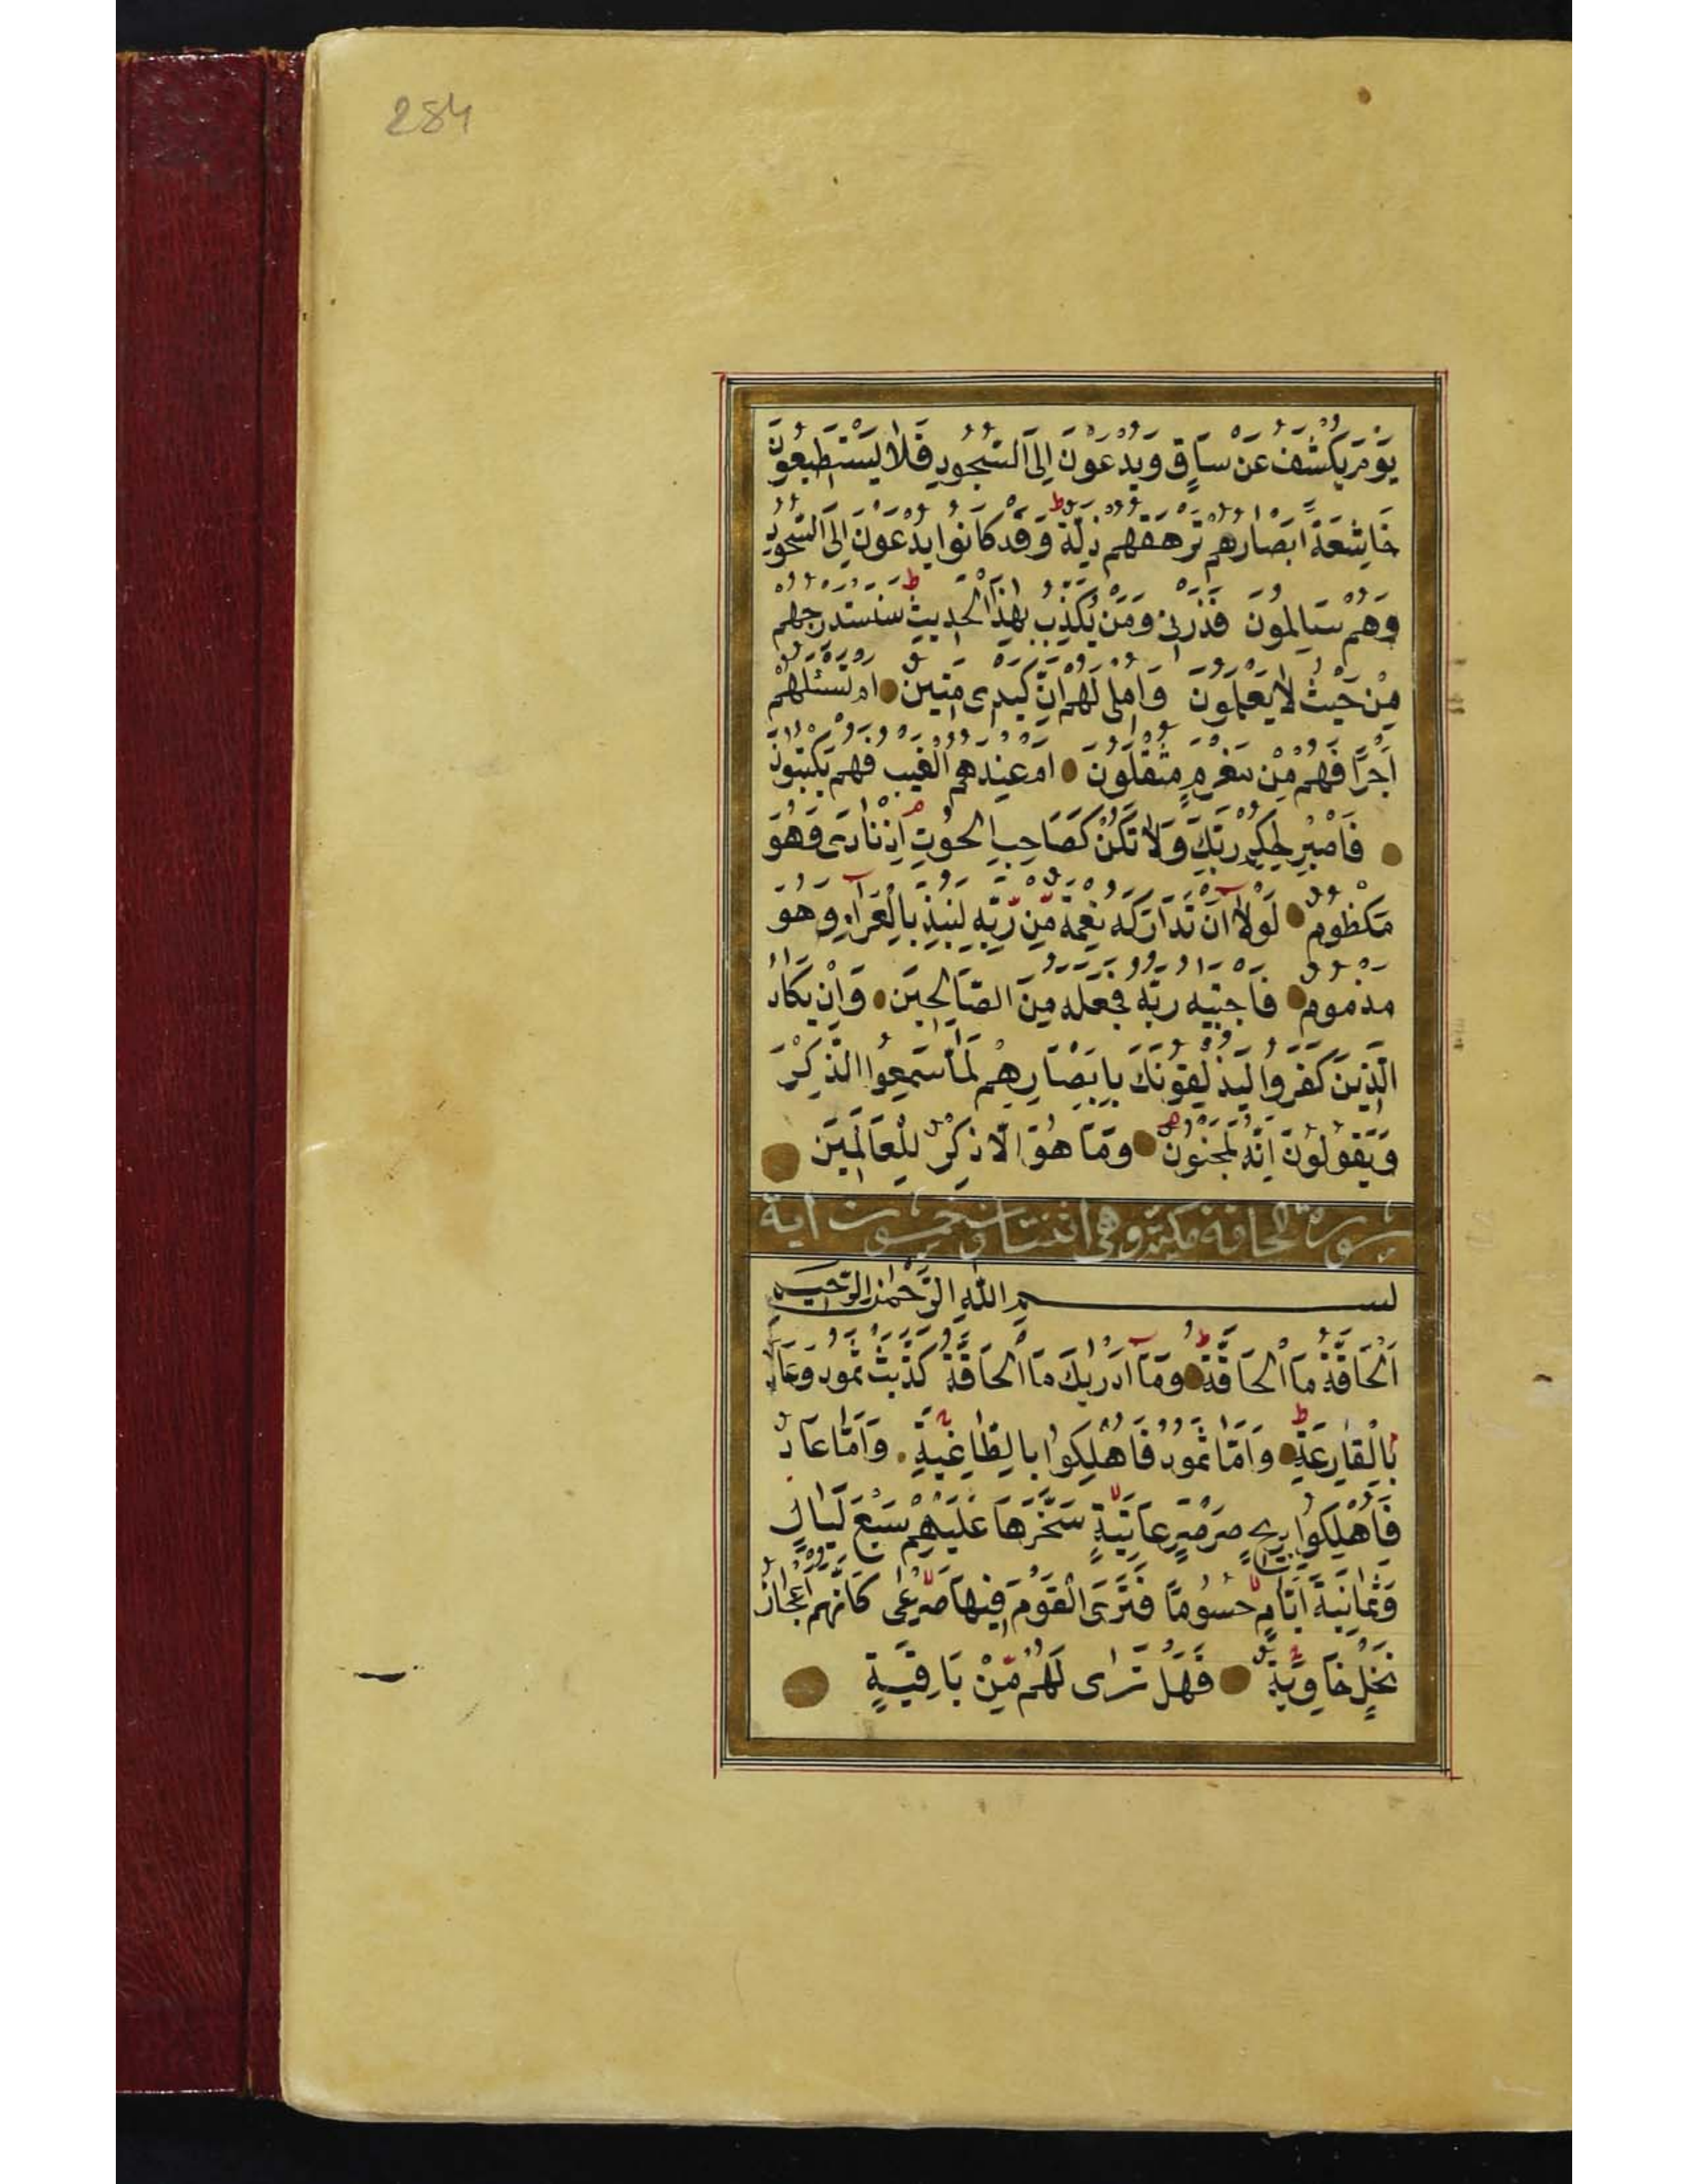 284
يَوْمَ يُكْشَفُ عَنْ سَاقٍ وَيُدْعَوْنَ اِلَى السُّجُودِ فَلَا يَسْتَطِيعُونَ
خَاشِعَةً اَبْصَارُهُمْ تَرْهَقُهُمْ ذِلَّةٌ ط وَقَدْ كَانُوا يُدْعَوْنَ اِلَى السُّجُودِ
وَهُمْ سَالِمُونَ فَذَرْنِى وَمَنْ يُكَذِّبُ بِهٰذَا الْحَدِيثِ ط سَنَسْتَدْرِجُهُمْ
مِنْ حَيْثُ لَا يَعْلَمُونَ وَاُمْلِى لَهُمْ اِنَّ كَيْدِى مَتِينٌ اَمْ تَسْئَلُهُمْ
اَجْرًا فَهُمْ مِنْ مَغْرَمٍ مُثْقَلُونَ اَمْ عِنْدَهُمُ الْغَيْبُ فَهُمْ يَكْتُبُونَ
فَاصْبِرْ لِحُكْمِ رَبِّكَ وَلَا تَكُنْ كَصَاحِبِ الْحُوتِ م اِذْ نَادٰى وَهُوَ
مَكْظُومٌ لَوْلَآ اَنْ تَدَارَكَهُ نِعْمَةٌ مِّنْ رَّبِّهِ لَنُبِذَ بِالْعَرَآءِ وَهُوَ
مَذْمُومٌ فَاجْتَبٰيهُ رَبُّهُ فَجَعَلَهُ مِنَ الصَّالِحِينَ وَاِنْ يَكَادُ
الَّذِينَ كَفَرُوا لَيُزْلِقُونَكَ بِاَبْصَارِهِمْ لَمَّا سَمِعُوا الذِّكْرَ
وَيَقُولُونَ اِنَّهُ لَمَجْنُونٌ م وَمَا هُوَ اِلَّا ذِكْرٌ لِلْعَالَمِينَ
سورة الحاقة مكية وهى اثنتان وخمسون اية
بسم اللّٰهِ الرَّحْمٰنِ الرَّحِيمِ
اَلْحَاقَّةُ مَا الْحَاقَّةُ ط وَمَآ اَدْرٰيكَ مَا الْحَاقَّةُ كَذَّبَتْ ثَمُودُ وَعَادٌ
بِالْقَارِعَةِ ط وَاَمَّا ثَمُودُ فَاُهْلِكُوا بِالطَّاغِيَةِ وَاَمَّا عَادٌ
فَاُهْلِكُوا بِرِيحٍ صَرْصَرٍ عَاتِيَةٍ لا سَخَّرَهَا عَلَيْهِمْ سَبْعَ لَيَالٍ
وَثَمَانِيَةَ اَيَّامٍ لا حُسُومًا فَتَرَى الْقَوْمَ فِيهَا صَرْعٰى لا كَاَنَّهُمْ اَعْجَازُ
نَخْلٍ خَاوِيَةٍ فَهَلْ تَرٰى لَهُمْ مِّنْ بَاقِيَةٍ